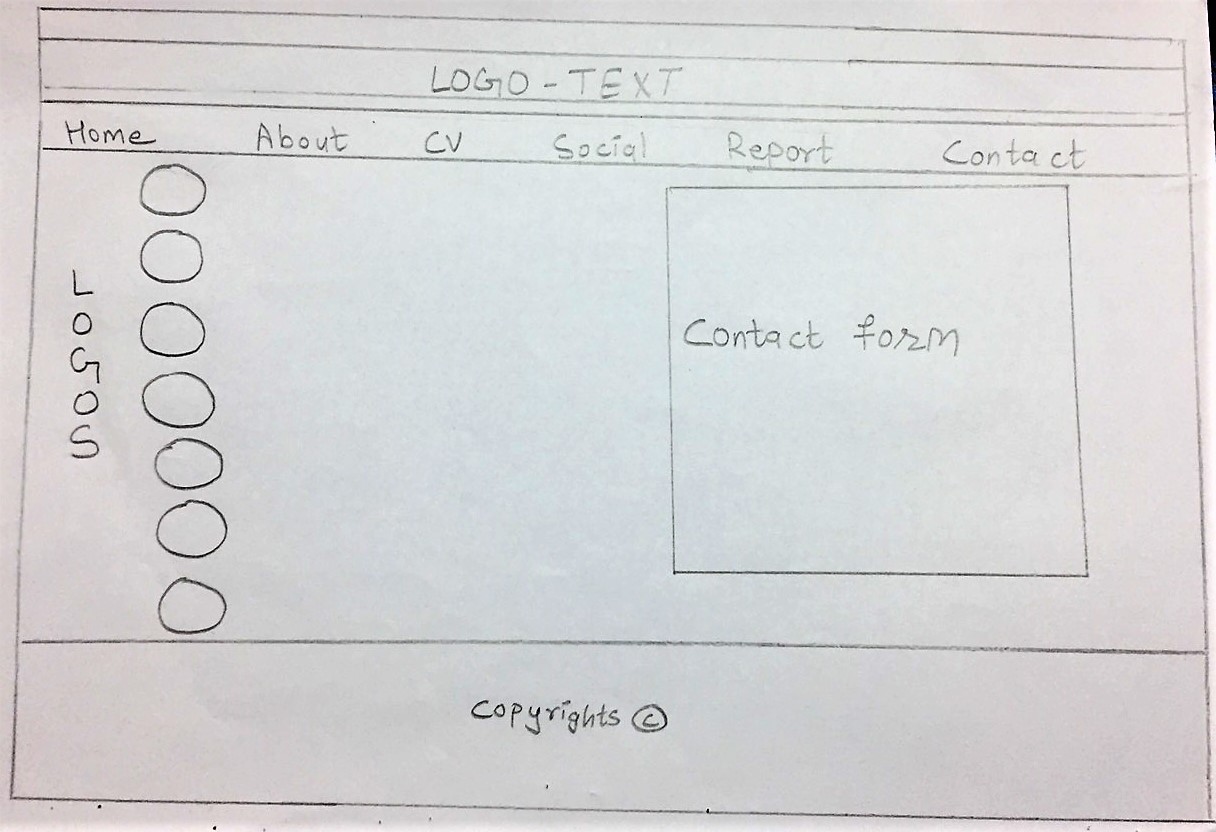 LOGO - TEXT
Home About CV Social Report Contact
LOGOS
Contact form
Copyrights ©